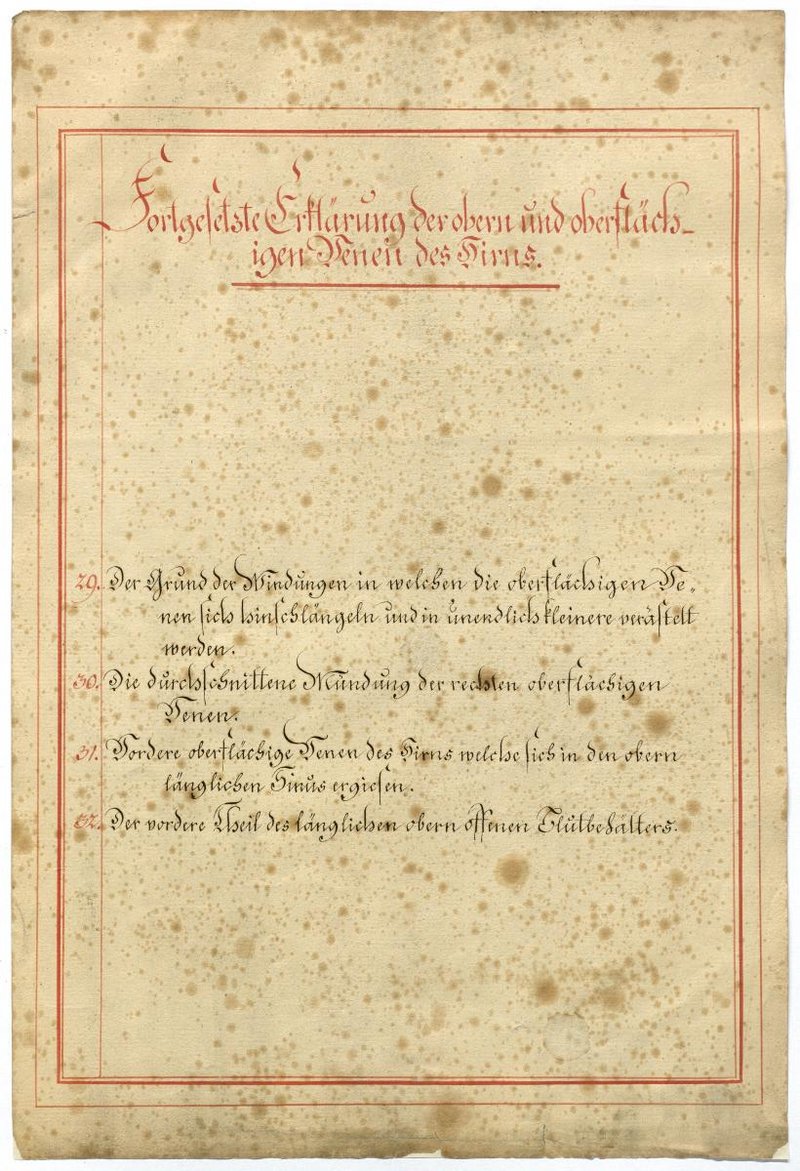 Fortgesetzte Erklärung der obern und oberfläch-
igen Venen des Hirns.
29. Der Grund der Windungen in welchen die oberflächigen Ve-
nen sich hinschlängeln und in unendlich kleinere verästelt
werden.
30. Die durchschnittene Mündung der rechten oberflächigen
Venen.
31. Vordere oberflächige Venen des Hirns welche sich in den obern
länglichen Sinus ergiesen.
32. Der vordere Theil des länglichen obern offenen Blutbehälters.